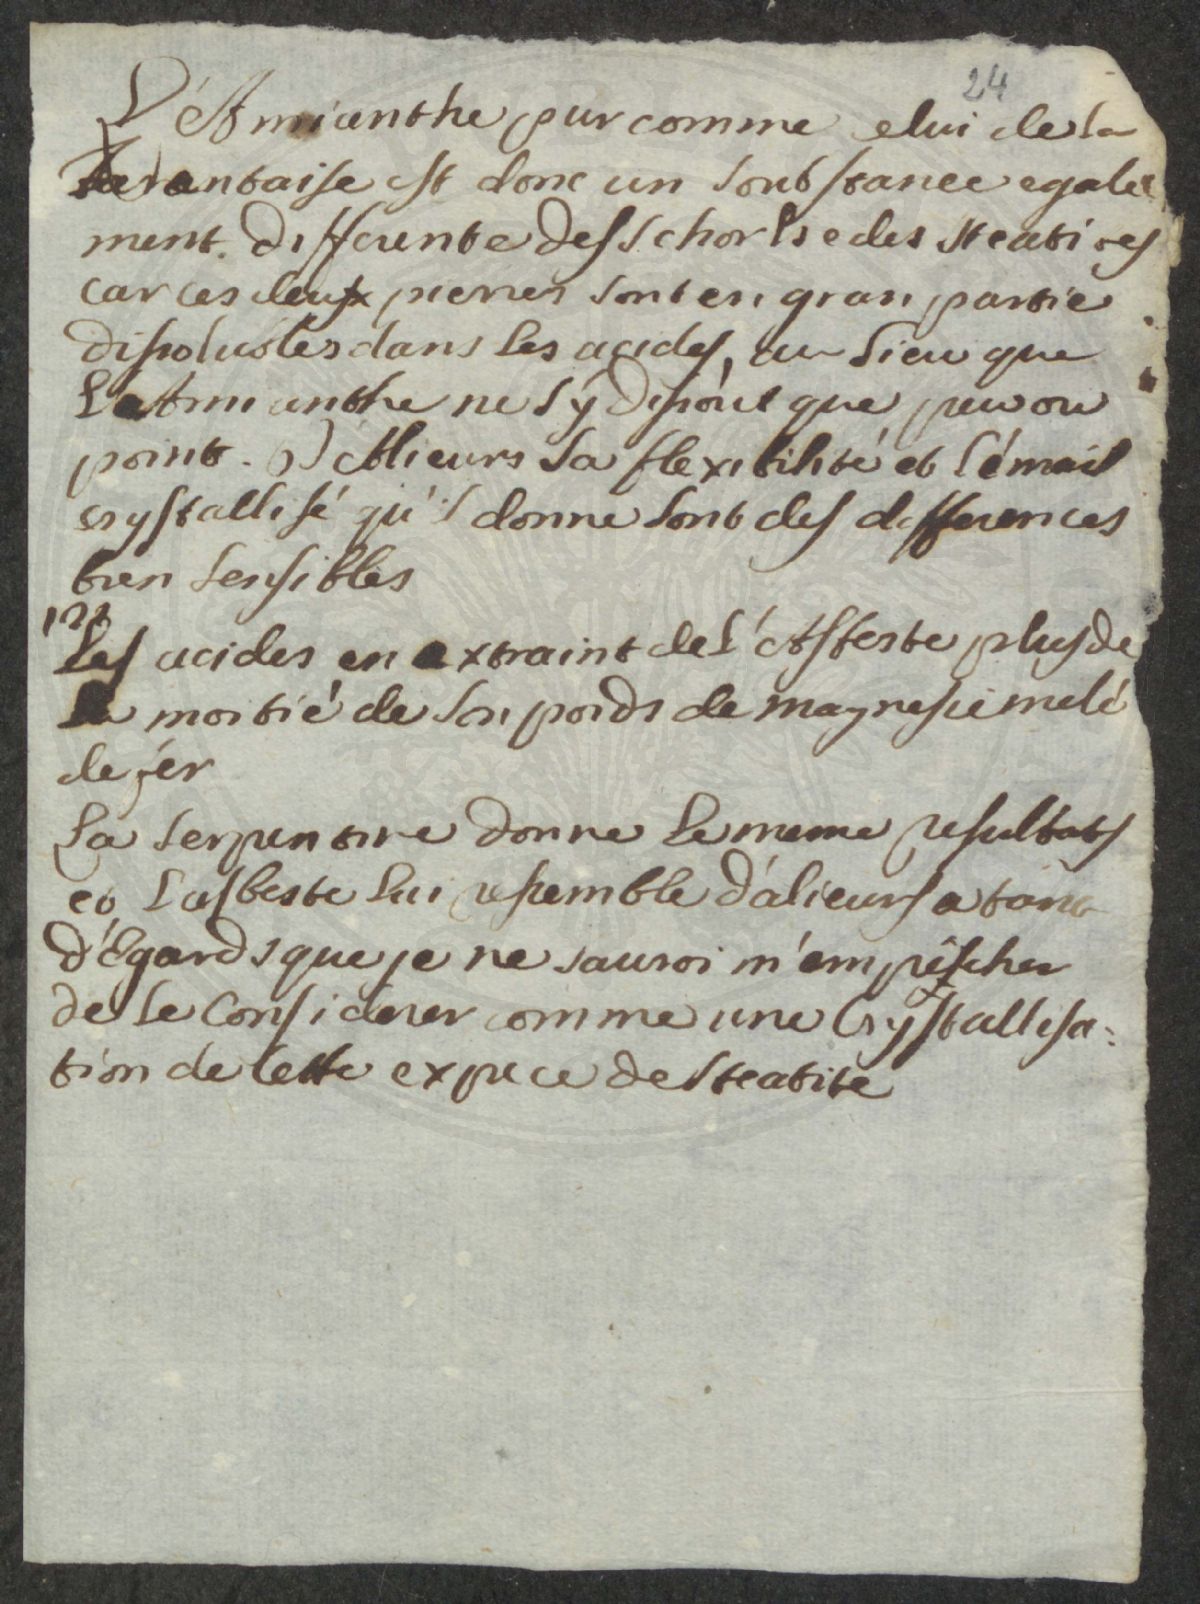 24
L'Amianthe pur comme celui de la
Tarantaise est donc un soubstance egale
ment. differente des schorls e des steatites
car ces deux pierres sont en gran partie
dissolubles dans les acides, au lieu que
L'Amianthe ne s'y dissout que peu ou
point. D'Allieurs sa flexibilité et l'émail
crystallisé qu'il donne sont des differences
bien sensibles
122
Les acides en extraint de l'Asbeste plus de
la moitié de son poids de magnesie melé
de fer
La serpentine donne le meme resultats
et L'asbeste lui resemble d'alieurs a tant
d'Egards que je ne sauroi m'empêscher
de le Considerer comme une Crystallisa-
tion de cette expece de steatite